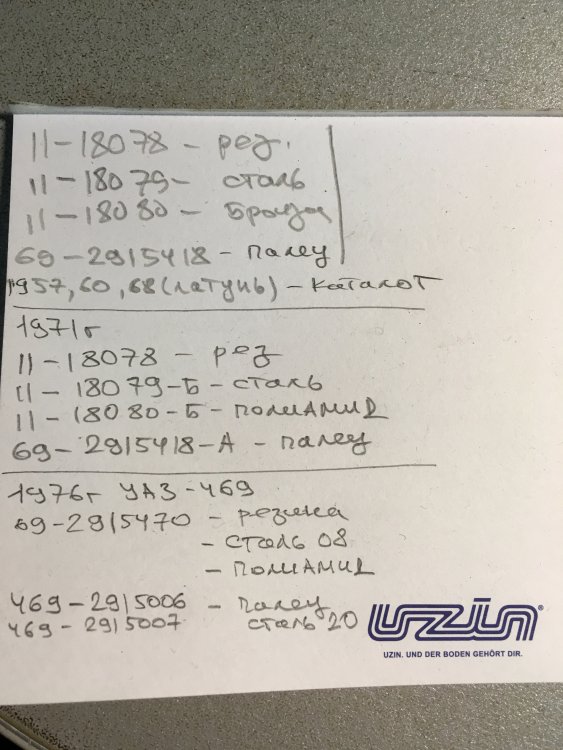 11-18078 - рез.
11-18079 - сталь
11-18080 - Бронза
69-2915418 - палец
1957, 60, 68 (латунь) - каталог
1971г
11-18078 - рез
11-18079-Б - сталь
11-18080-Б - полиамид
69-2915418-А - палец
1976г УАЗ-469
69-2915470 - резина
- сталь 08
- полиамид
469-2915006 - палец
469-2915007 сталь 20
uzin®
UZIN. UND DER BODEN GEHÖRT DIR.